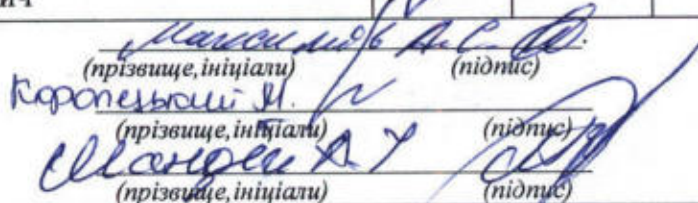 ич
Максимів А.С.
(прізвище, ініціали) (підпис)
М.
(прізвище, ініціали) (підпис)
(прізвище, ініціали) (підпис)